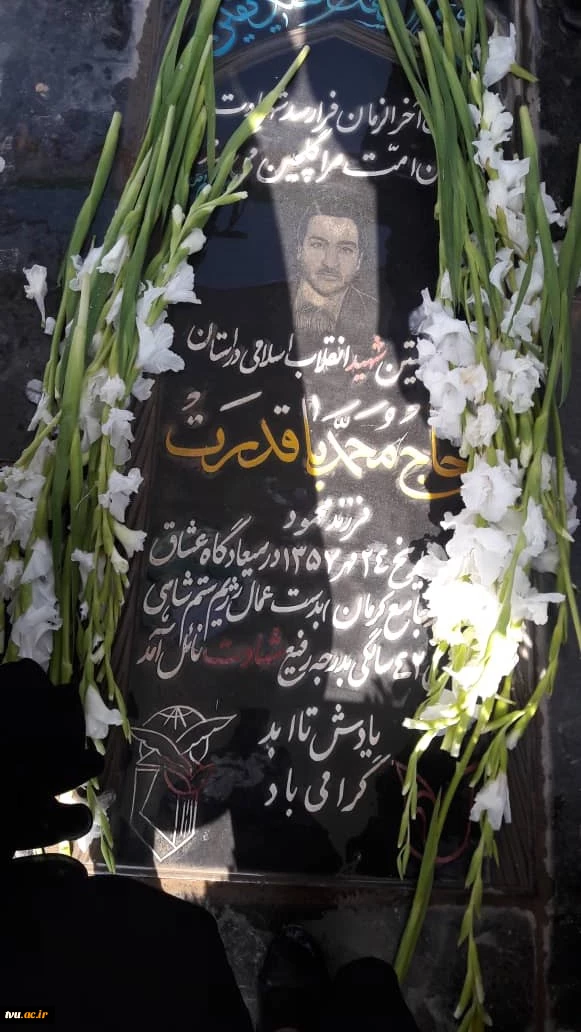 آخر از زمان فرا رسد شهادت
امّت مرا گلچین می
شهید انقلاب اسلامی در استان
حاج محمّد باقدرت
فرزند محمود
۲۴ مهر ۱۳۵۷ در میعادگاه عشاق
کرمان بدست عمال رژیم ستم شاهی
۴۲ سالگی بدرجه رفیع شهادت نائل آمد
یادش تا ابد
گرامی باد
tvu.ac.ir